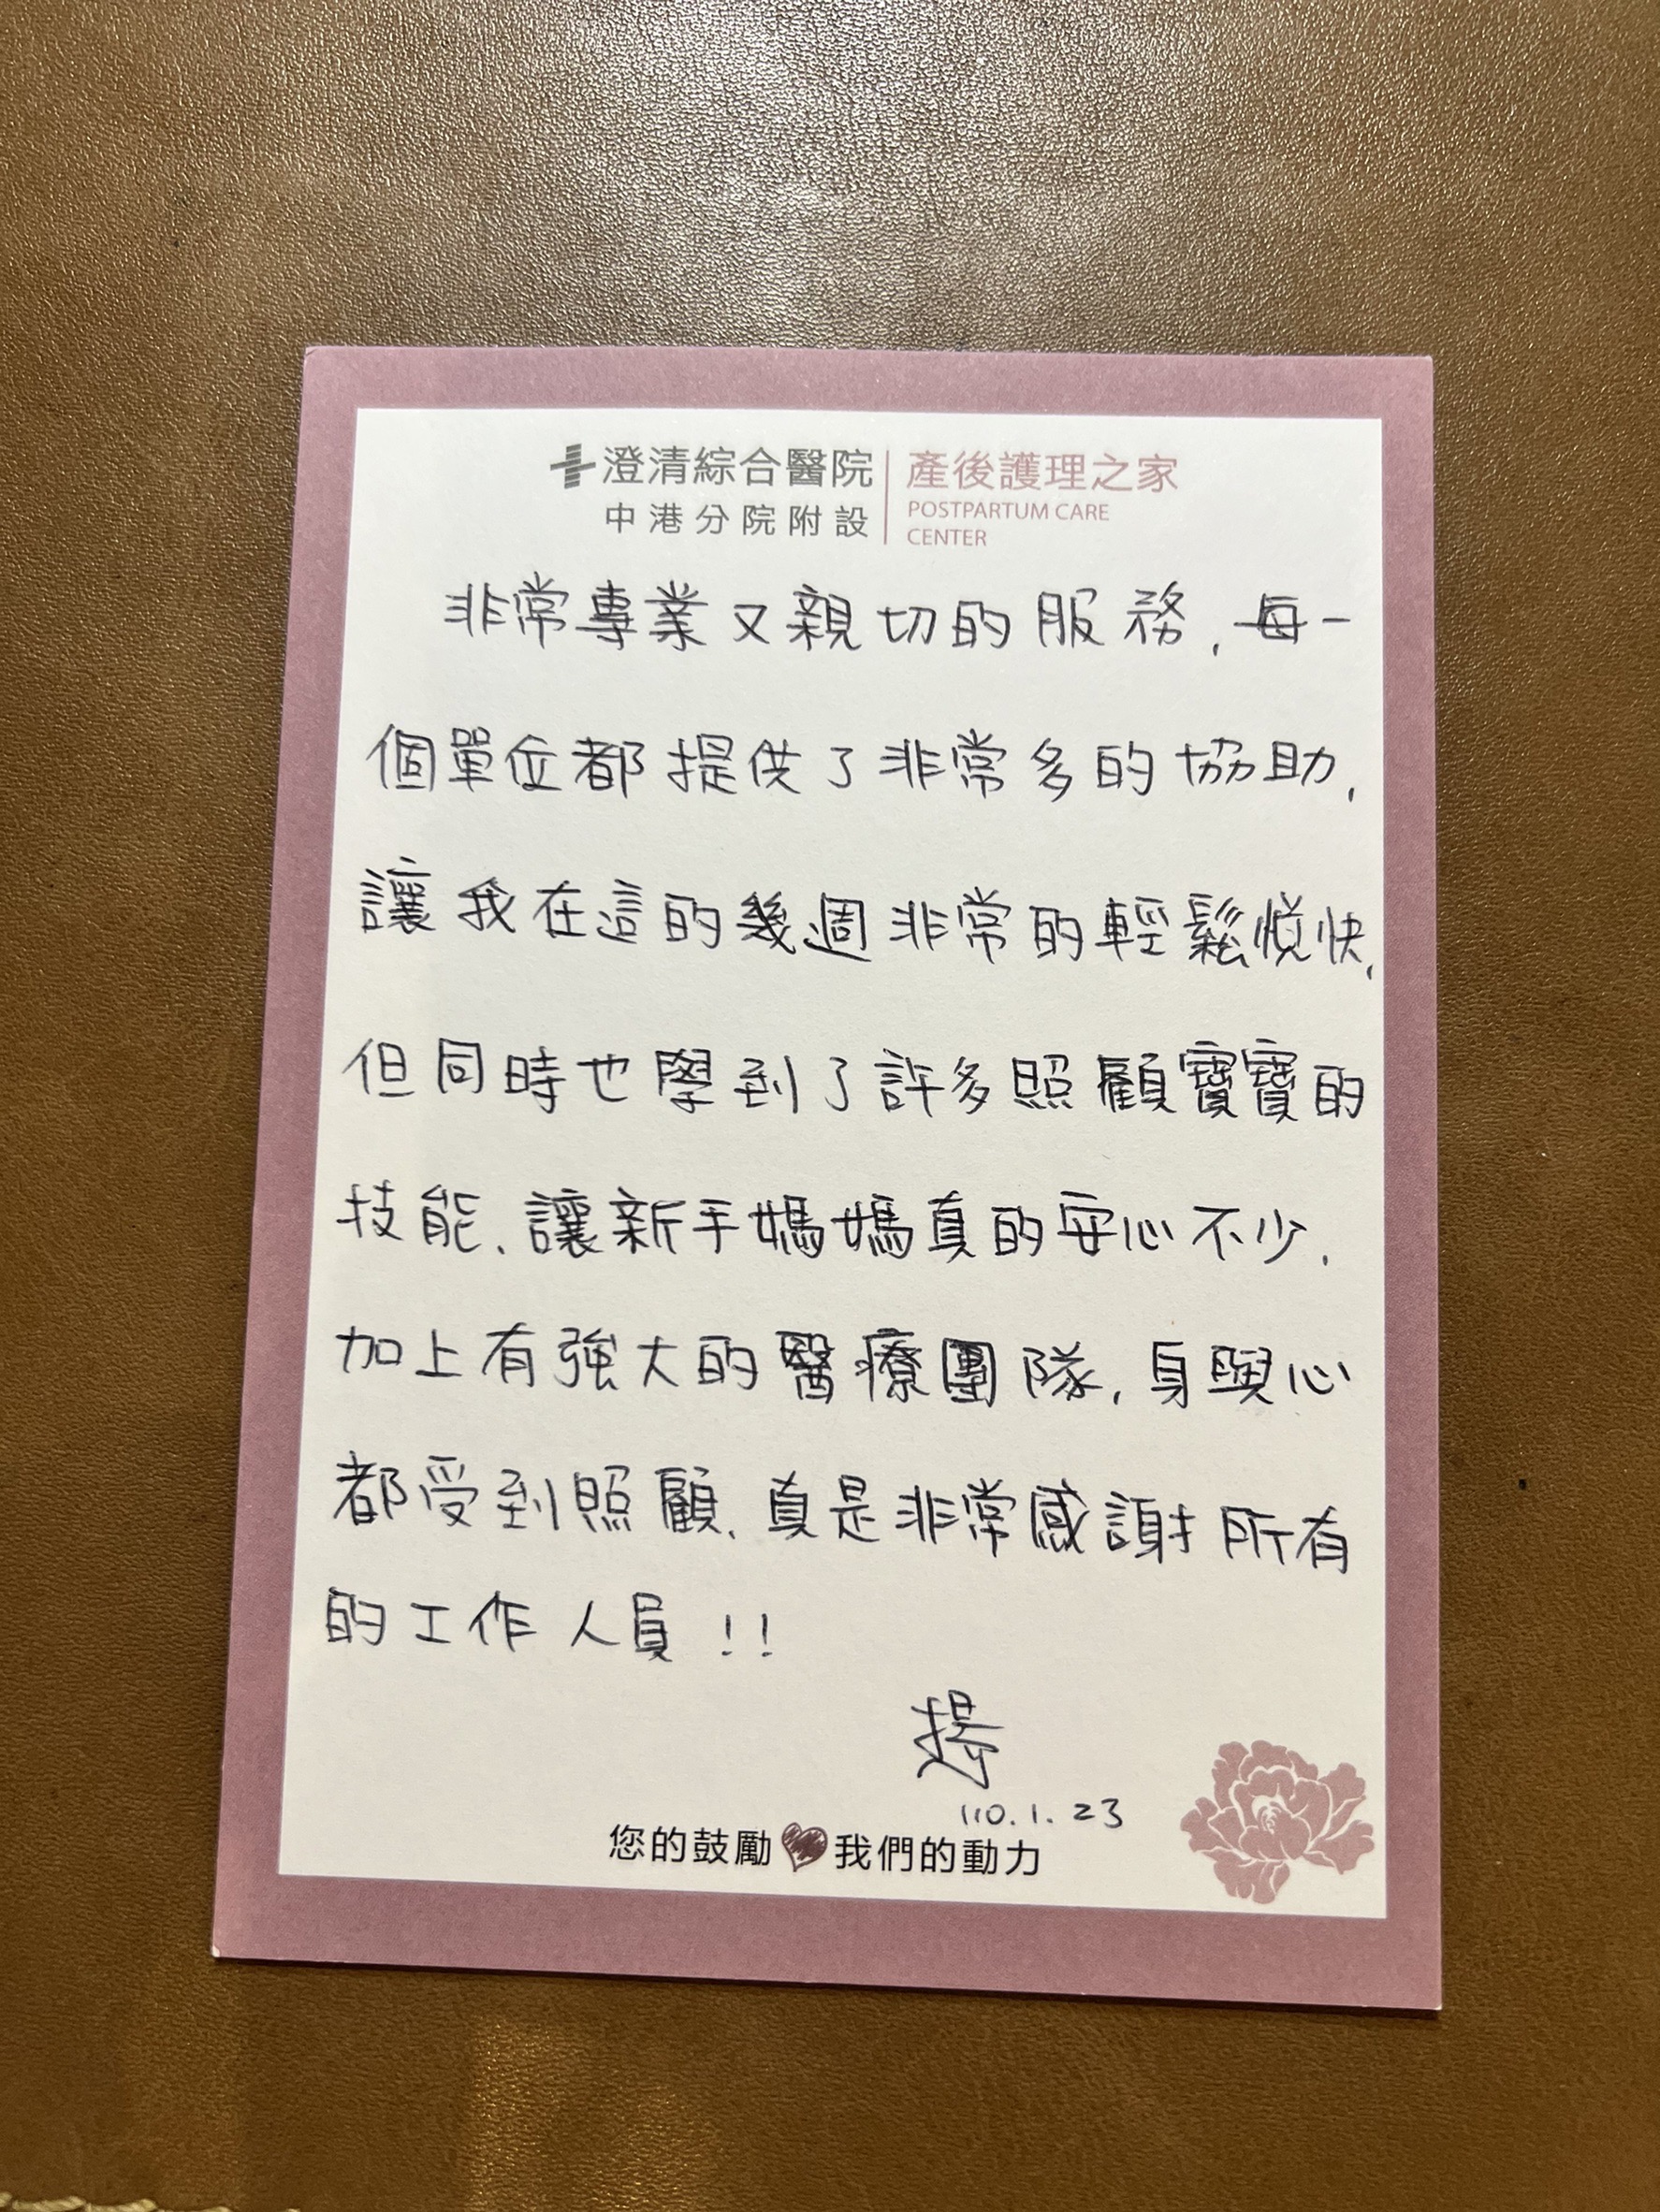 澄清綜合醫院
中港分院附設
產後護理之家
POSTPARTUM CARE
CENTER
非常專業又親切的服務,每一
個單位都提供了非常多的協助,
讓我在這的幾週非常的輕鬆愉快,
但同時也學到了許多照顧寶寶的
技能、讓新手媽媽真的安心不少,
加上有強大的醫療團隊,身與心
都受到照顧,真是非常感謝所有
的工作人員!!
110.1.23
您的鼓勵 我們的動力